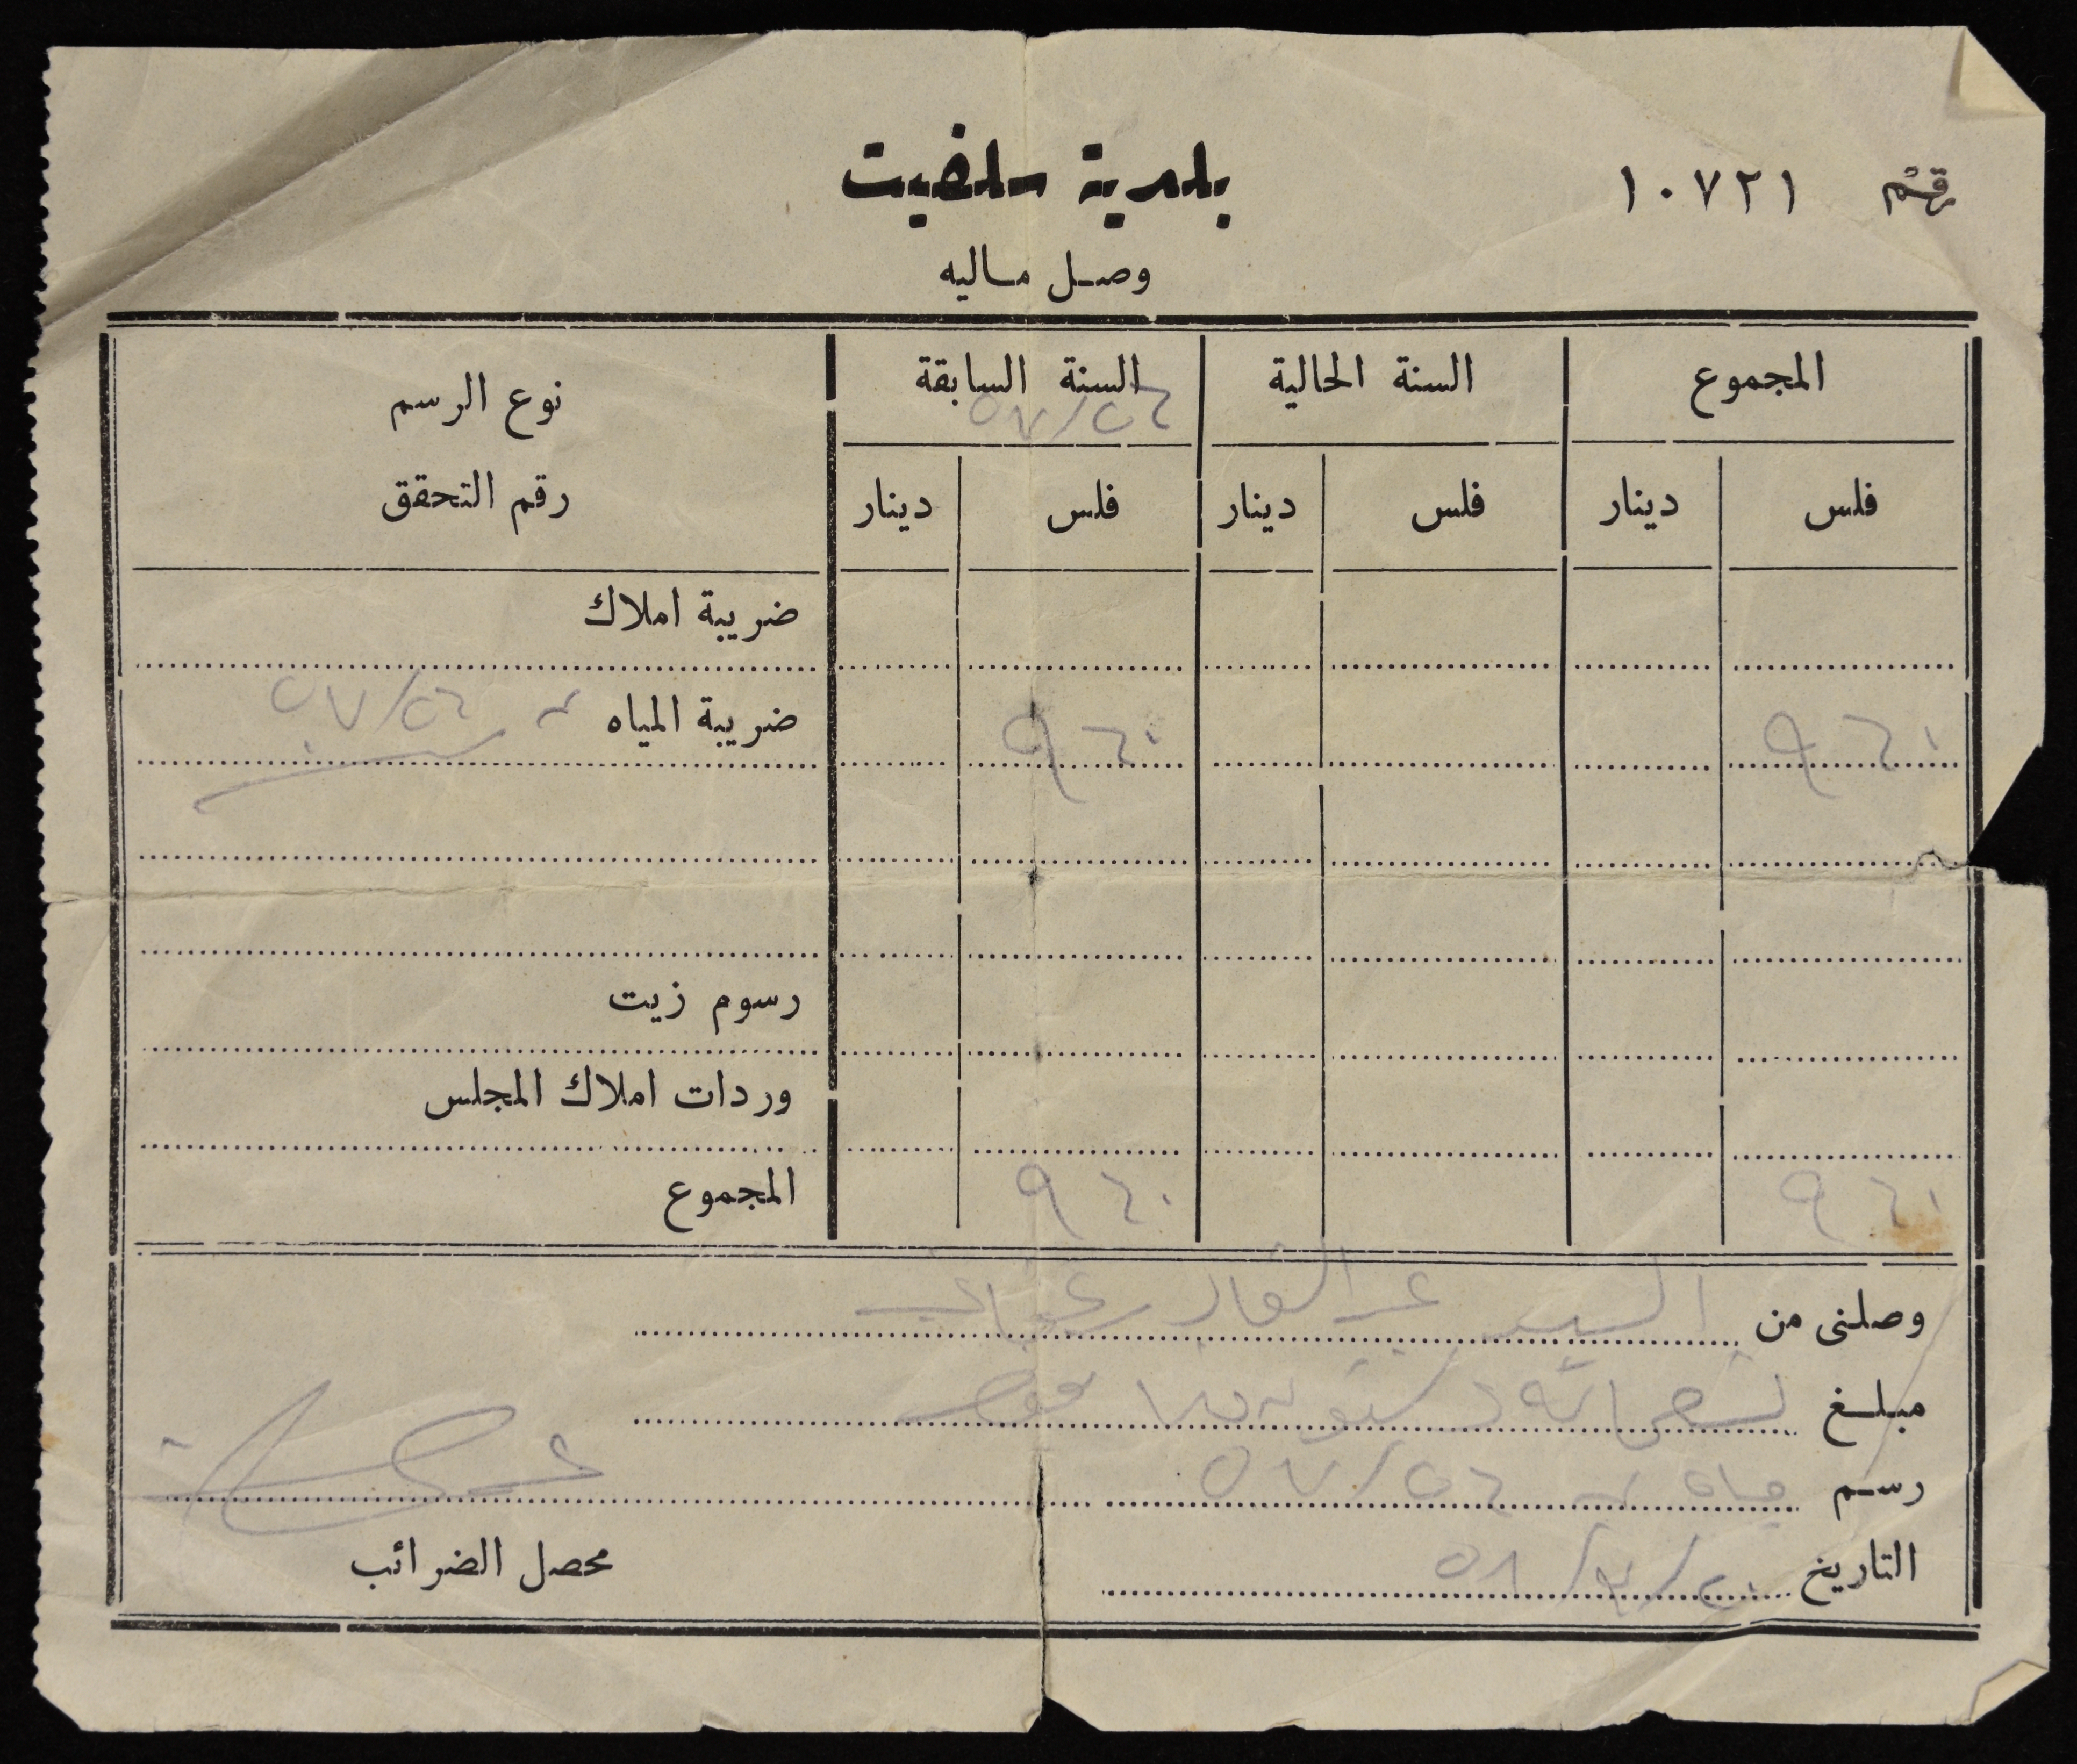 رقم ١٠٧٢١
بلدية سلفيت
وصل ماليه
المجموع السنة الحالية السنة السابقة نوع الرسم
٥٧/٥٦
فلس دينار فلس دينار فلس دينار رقم التحقق
ضريبة املاك
٩٦٠ ٩٦٠ ضريبة المياه ٥٧/٥٦
رسوم زيت
وردات املاك المجلس
٩٦٠ ٩٦٠ المجموع
وصلنى من السيد عبد القادر
مبلغ تسعمائة وستون فلسا فقط
رسم مياه ٥٧/٥٦
التاريخ
محصل الضرائب